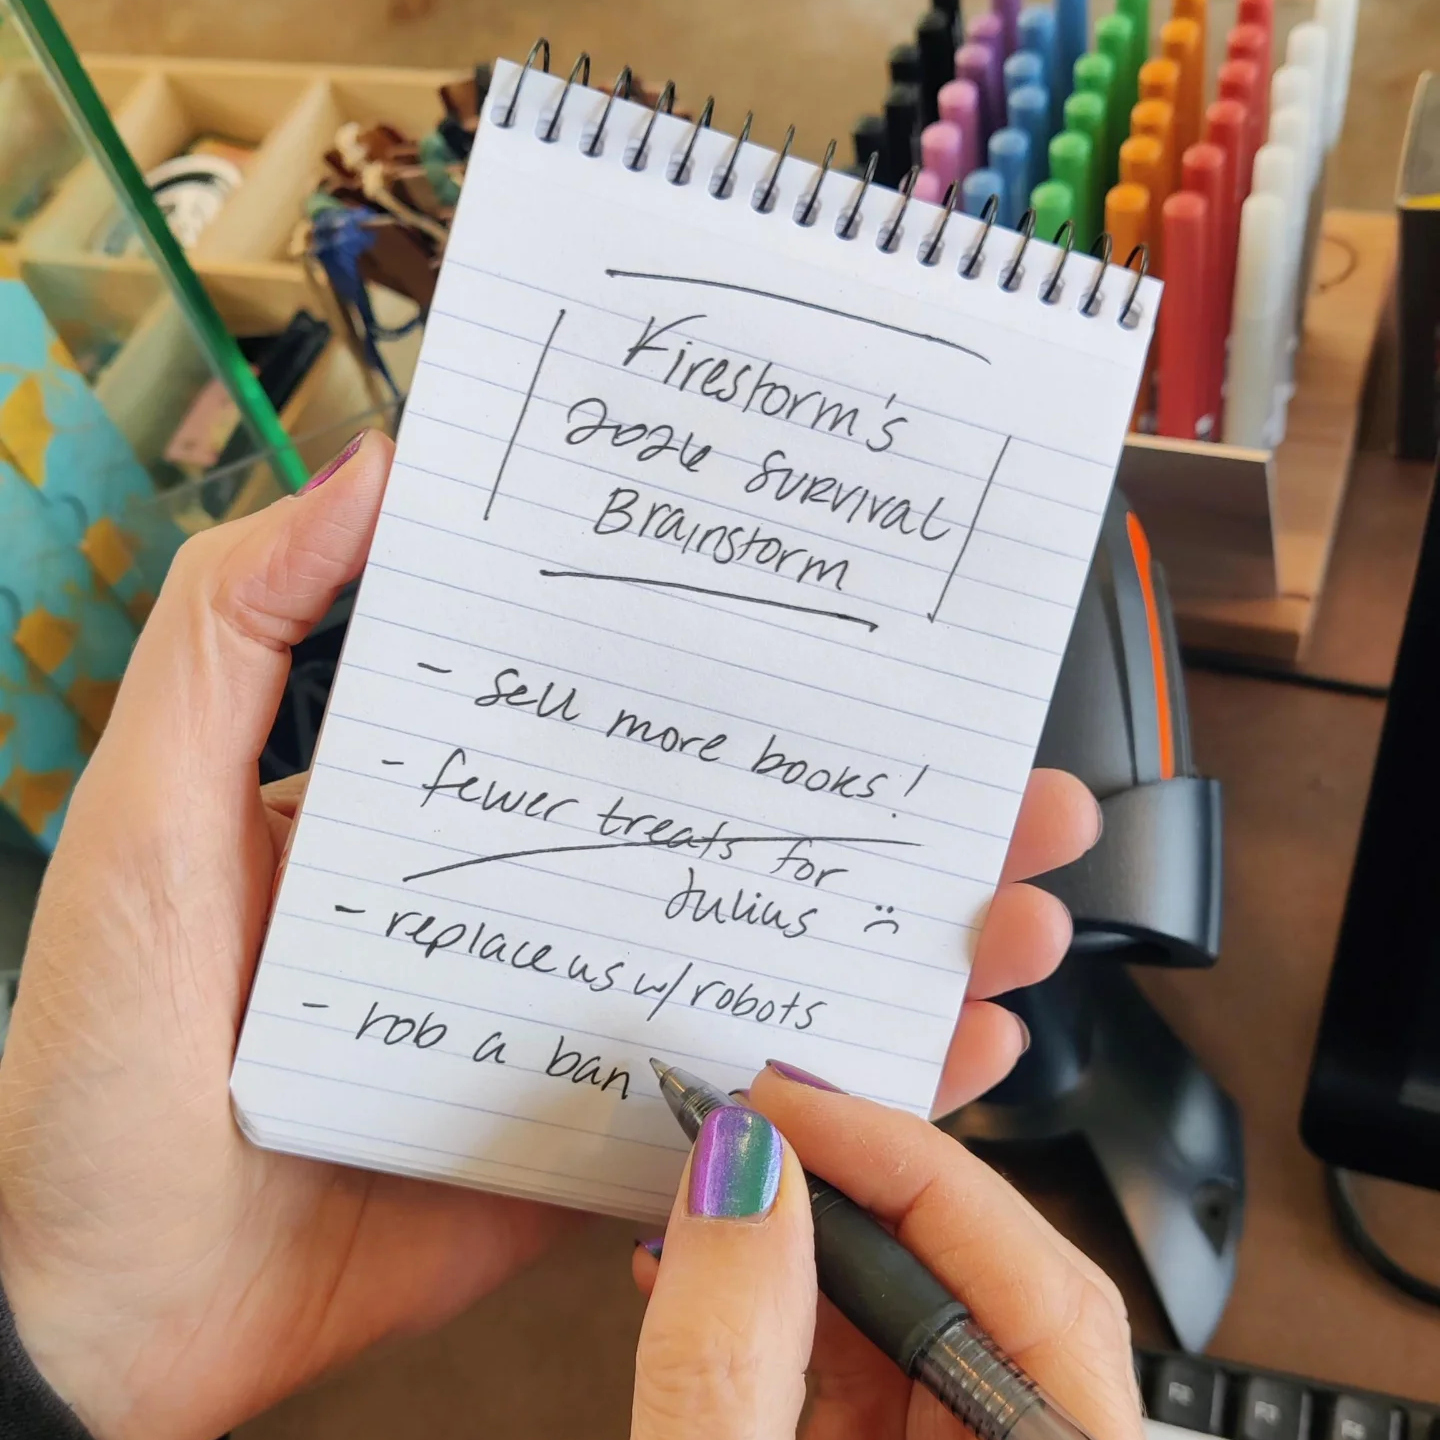 Firestorm's
2026 SURVIVAL
Brainstorm
- sell more books!
- fewer treats for
Julius :(
- replace us w/ robots
- rob a ban